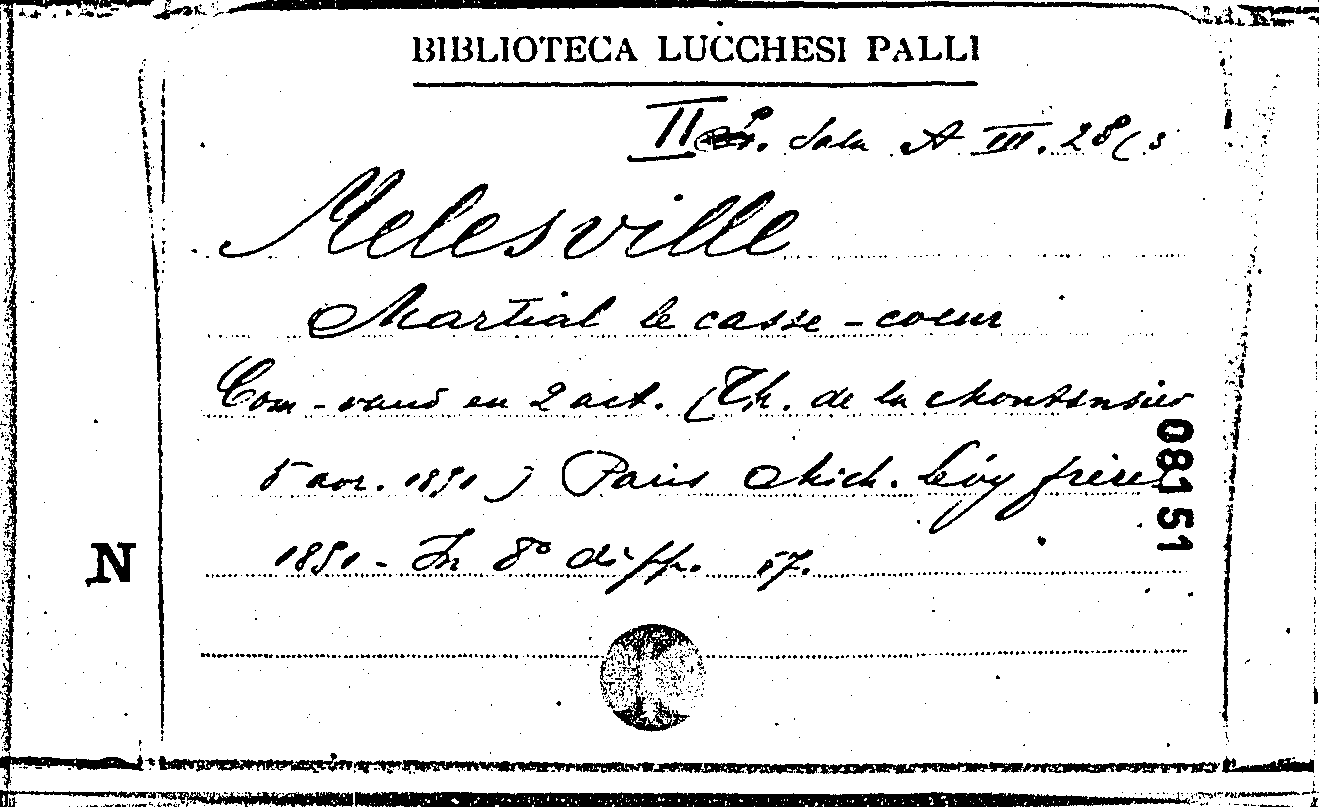 BIBLIOTECA LUCCHESI PALLI
II Sala A III. 28(3
Melesville
Martial le casse-coeur
Com-vaud en 2 act. (Th. de la Montansier
5 avr. 1851) Paris Mich. Lévy frères
1851 - In 8° di pp. 57.
N
08151